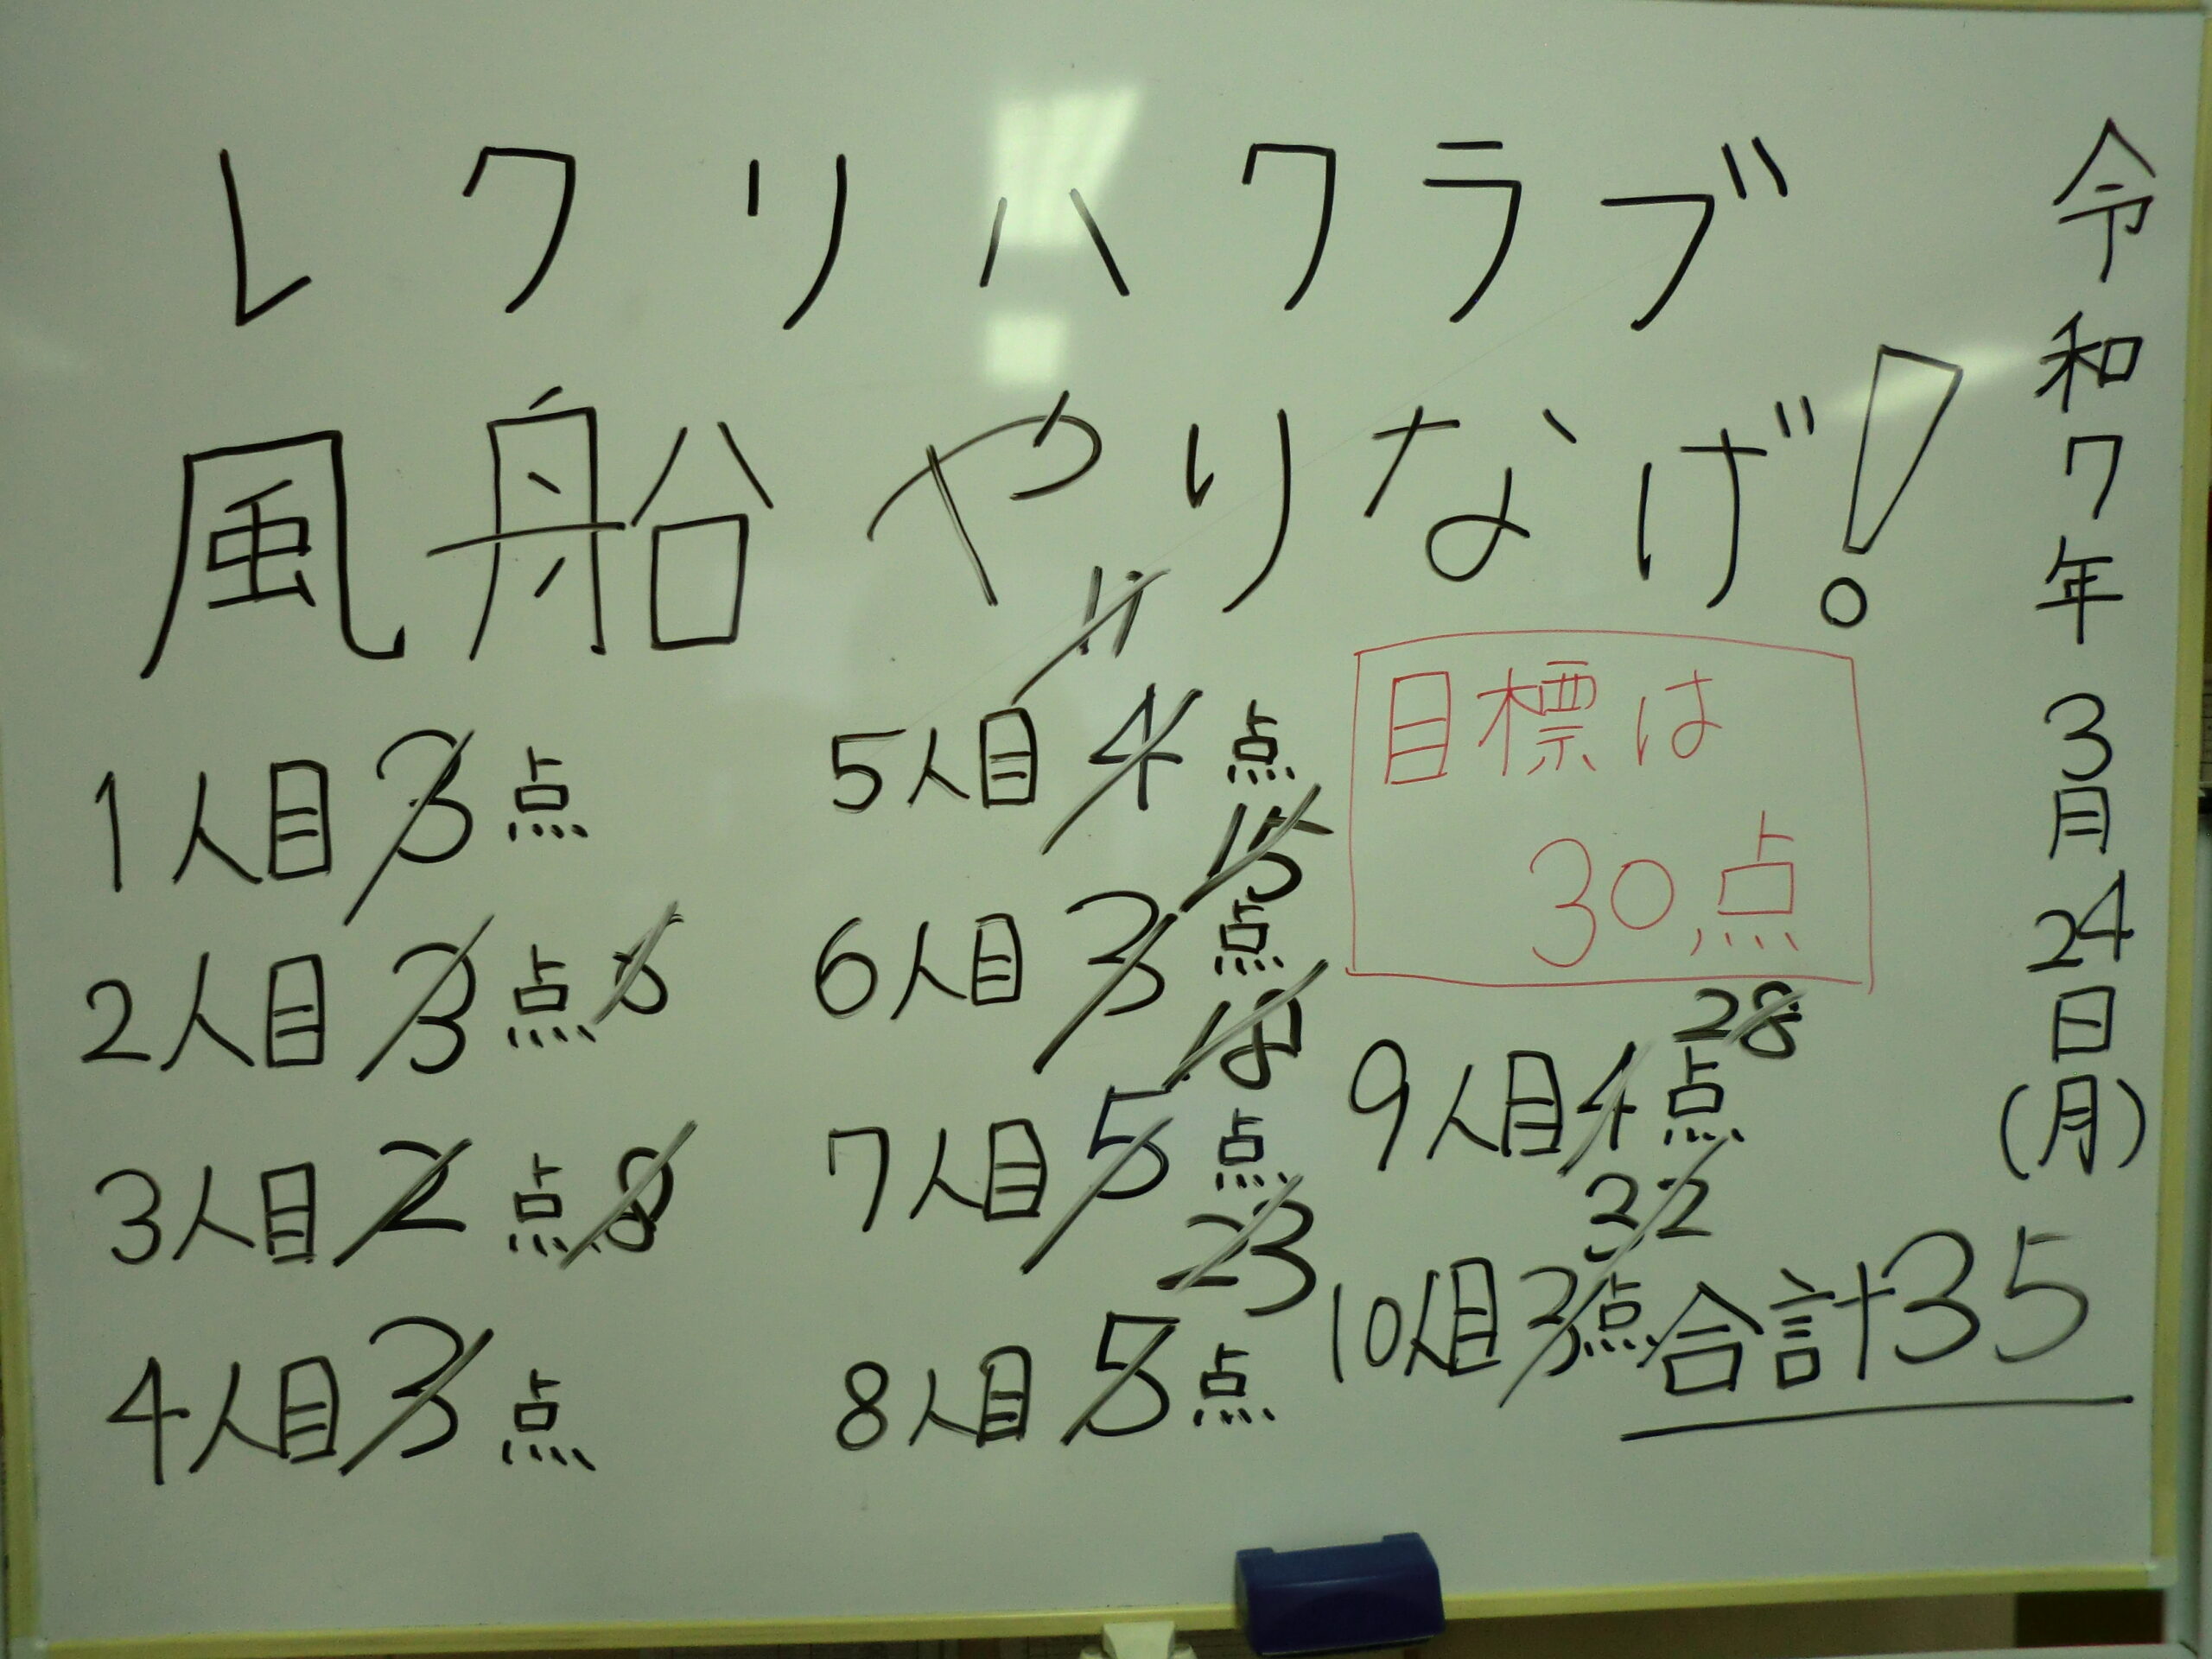 レクリハクラブ
風船やりなげ!
令和7年3月24日(月)
目標は
30点
1人目 3点
2人目 3点 6
3人目 2点 8
4人目 3点
11
5人目 4点
15
6人目 3点
18
7人目 5点
23
8人目 5点
28
9人目 4点
32
10人目 3点
合計35